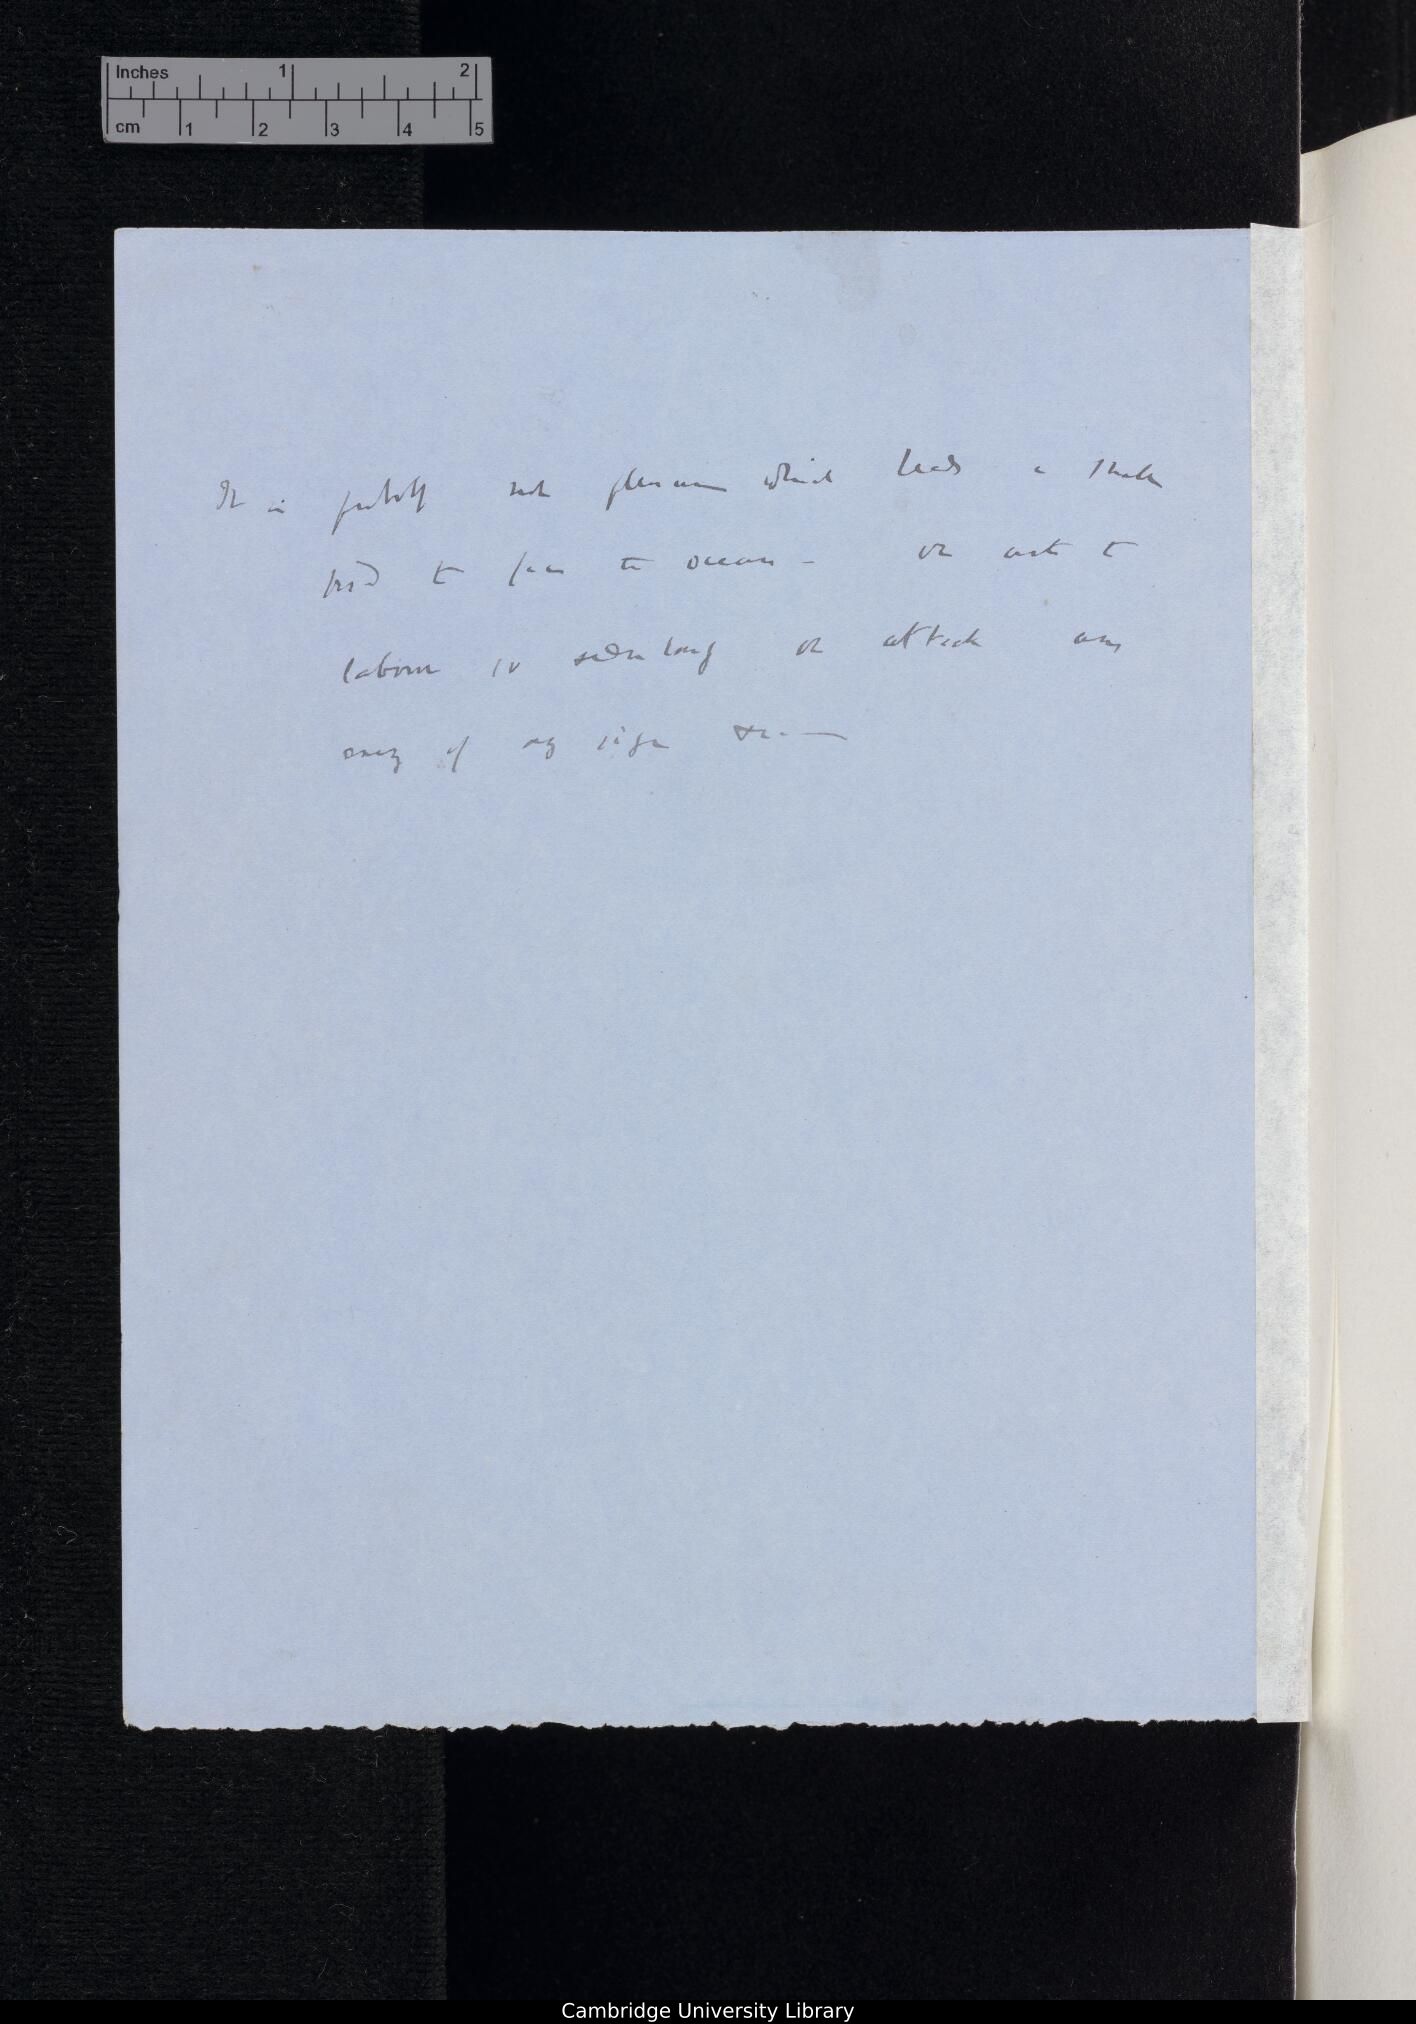 Inches 1 2
cm 1 2 3 4 5
It is not pleasure which leads a small
bird to face the ocean – or ants to
labour so or attack any
enemy of any size
Cambridge University Library